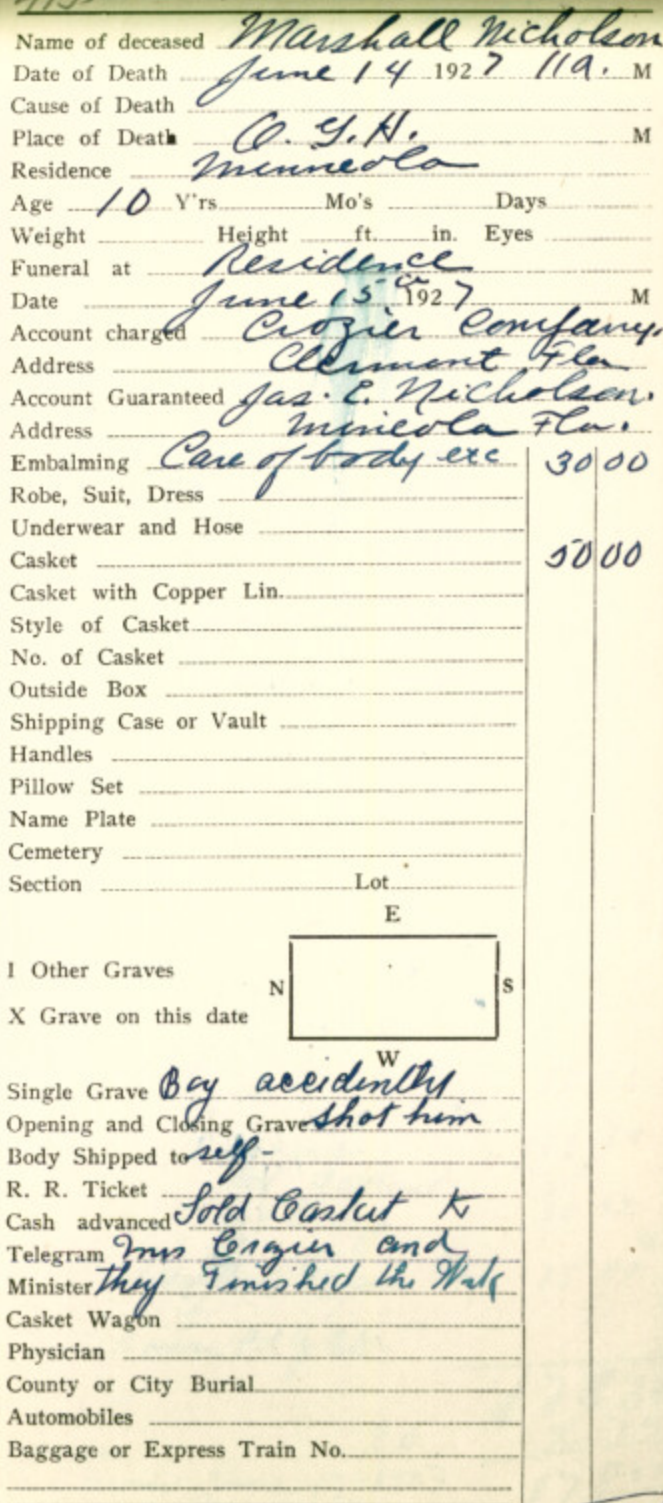 Name of deceased Marshall Nicholson
Date of Death June 14 1927 11a. M
Cause of Death
Place of Death O. G. H. M
Residence Minneola
Age 10 Y'rs. Mo's Days
Weight Height ft. in. Eyes
Funeral at Residence
Date June 15th 1927 M
Account charged Crozier Company.
Address Clermont Fla
Account Guaranteed Jas. E. Nicholson.
Address Mineola Fla.
Embalming Care of body exc 30 00
Robe, Suit, Dress
Underwear and Hose
Casket 50 00
Casket with Copper Lin.
Style of Casket
No. of Casket
Outside Box
Shipping Case or Vault
Handles
Pillow Set
Name Plate
Cemetery
Section Lot
E
I Other Graves
N S
X Grave on this date
W
Single Grave Boy accidintly
Opening and Closing Grave shot him
Body Shipped to self-
R. R. Ticket
Cash advanced Sold Casket to
Telegram Mrs Crozier and
Minister they Finished the
Casket Wagon
Physician
County or City Burial
Automobiles
Baggage or Express Train No.